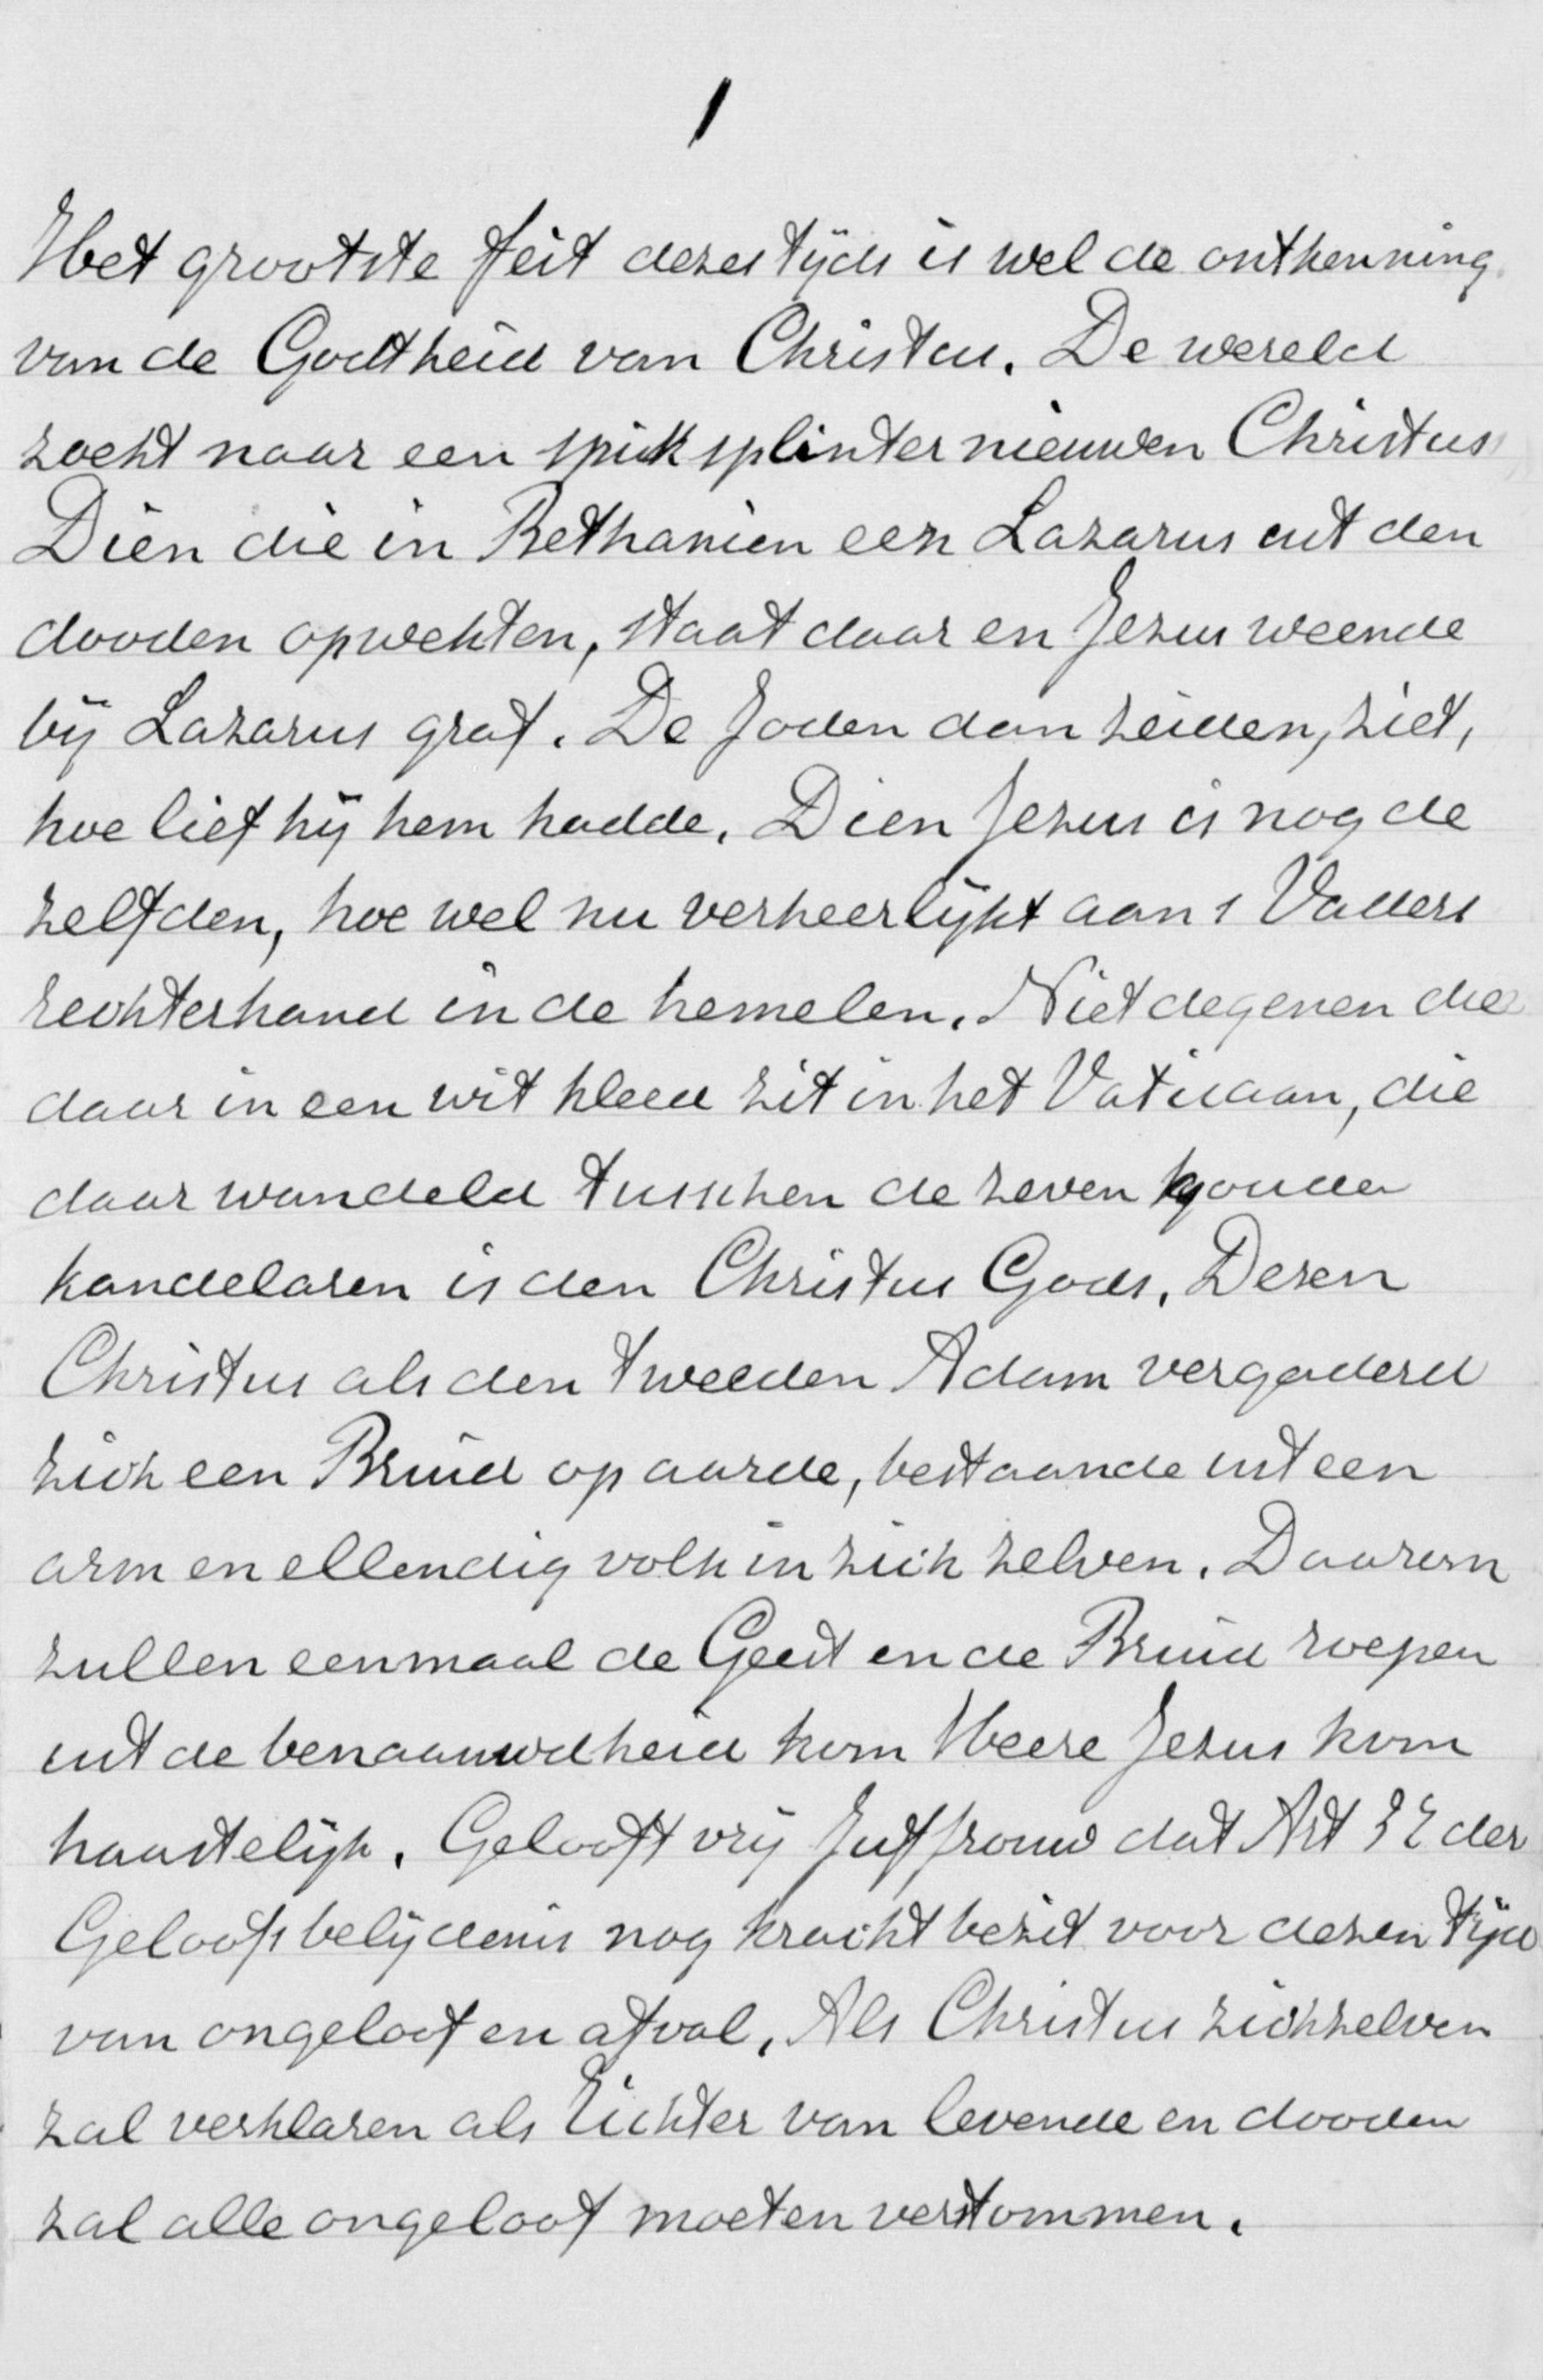 1
Het grootste feit dezes tijds is wel de ontkenning
van de Godtheid van Christus. De wereld
zoekt naar een spiksplinter nieuwen Christus
Dien die in Bethanien een Lazarus uit den
dooden opwekten, staat daar en Jezus weende
bij Lazarus graf. De Joden dan zeiden, ziet,
hoe lief hij hem hadde. Dien Jezus is nog de
zelfden, hoe wel nu verheerlijkt aan s Vaders
rechterhand in de hemelen. Niet degenen die
daar in een wit kleed zit in het Vaticaan, die
daar wandeld tusschen de zeven gouden
kandelaren is den Christus Gods. Dezen
Christus als den tweeden Adam vergaderd
zich een Bruid op aarde, bestaande uit een
arm en ellendig volk in zich zelven. Daarom
zullen eenmaal de Geest en de Bruid roepen
uit de benaauwdheid kom Heere Jezus kom
haastelijk. Gelooft vrij Juffrouw dat Art 32 der
Geloofsbelijdenis nog kracht bezit voor dezen tijd
van ongeloof en afval. Als Christus zichzelven
zal verklaren als Richter van levende en dooden
zal alle ongeloof moeten verstommen.